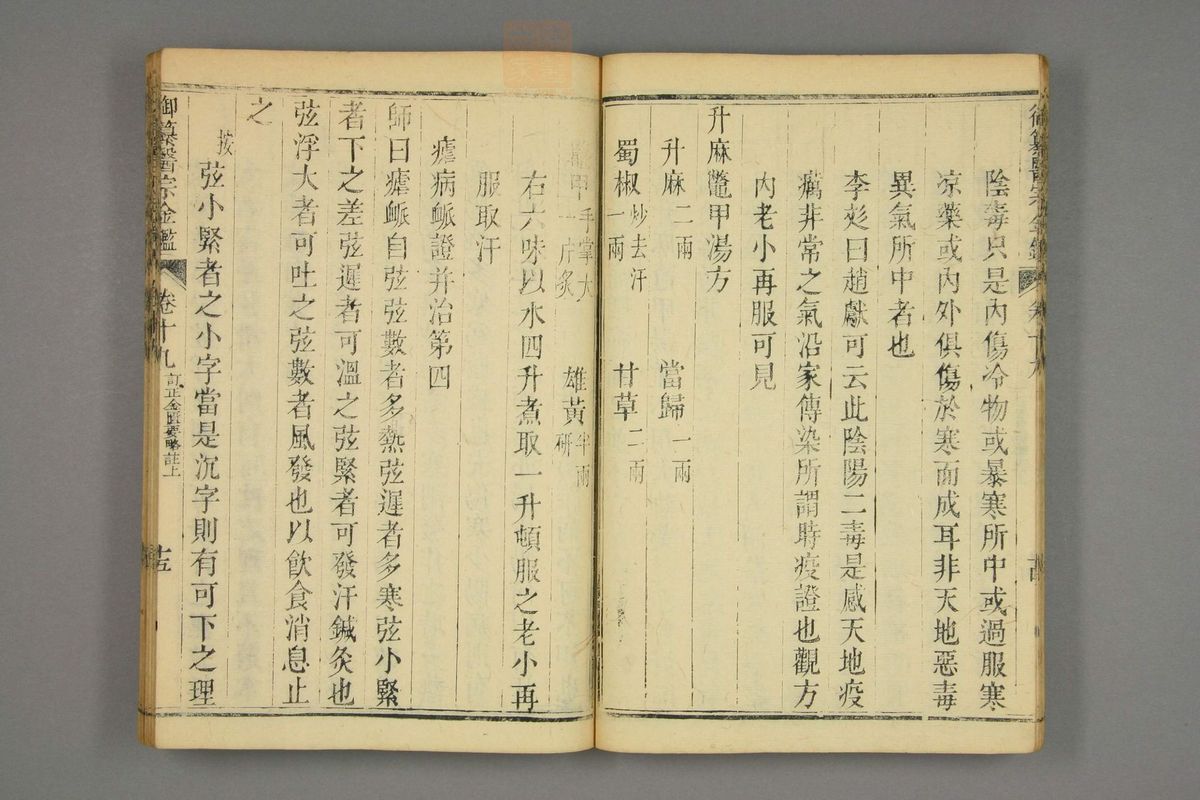 御纂醫宗金鑑 卷十九
陰毒只是內傷冷物或暴寒所中或過服寒
涼藥或內外俱傷於寒而成耳非天地惡毒
異氣所中者也
李彣曰趙獻可云此陰陽二毒是感天地疫
癘非常之氣沿家傳染所謂時疫證也觀方
內老小再服可見
升麻鼈甲湯方
升麻二兩 當歸一兩
蜀椒炒去汗一兩 甘草二兩
鼈甲手掌大一片炙 雄黃半兩研
右六味以水四升煮取一升頓服之老小再
服取汗
瘧病脈證并治第四
師曰瘧脈自弦弦數者多熱弦遲者多寒弦小緊
者下之差弦遲者可溫之弦緊者可發汗鍼灸也
弦浮大者可吐之弦數者風發也以飲食消息止
之
按弦小緊者之小字當是沉字則有可下之理
御纂醫宗金鑑 卷十九 訂正金匱要略註上